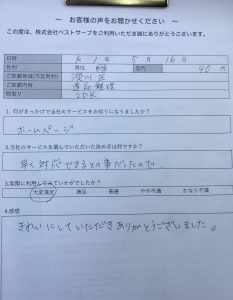 ～ お客様の声をお聴かせください ～
この度は、株式会社ベストサーブをご利用いただき誠にありがとうございます。
日時 R 1年 5月 16日
性別 年代 40代
ご依頼地域(市区町村)
ご依頼内容 遺品整理
間取り 2DK
1. 何がきっかけで当社のサービスをお知りになりましたか?
ホームページ
2.当社のサービスを選んでいただいた決め手は何ですか?
早く対応できるとの事だったので
3.実際に利用してみていかがでしたか?
大変満足 満足 普通 やや不満 かなり不満
4.感想
きれいにしていただきありがとうございました。